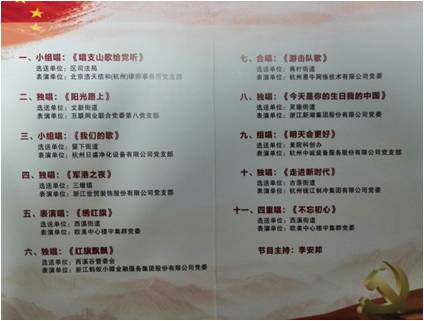 一、小组唱：《唱支山歌给党听》
选送单位：区司法局
表演单位：北京浩天信和(杭州)律师事务所党支部
二、独唱：《阳光路上》
选送单位：文新街道
表演单位：互联网业联合党委第八党支部
三、小组唱：《我们的歌》
选送单位：留下街道
表演单位：杭州日盛净化设备有限公司党支部
四、独唱：《军港之夜》
选送单位：三墩镇
表演单位：浙江世贸装饰股份有限公司党支部
五、表演唱：《绣红旗》
选送单位：西溪街道
表演单位：欧美中心楼宇集群党委
六、独唱：《红旗飘飘》
选送单位：西溪谷管委会
表演单位：浙江蚂蚁小微金融服务集团股份有限公司党委
七、合唱：《游击队歌》
选送单位：蒋村街道
表演单位：杭州恩牛网络技术有限公司党委
八、独唱：《今天是你的生日我的中国》
选送单位：灵隐街道
表演单位：浙江新湖集团股份有限公司党委
九、组唱：《明天会更好》
选送单位：美院科创办
表演单位：杭州中诚装备服务股份有限公司党委
十、独唱：《走进新时代》
选送单位：古荡街道
表演单位：杭州钱江制冷集团有限公司党委
十一、四重唱：《不忘初心》
选送单位：西溪街道
表演单位：欧美中心楼宇集群党委
节目主持：李安邦